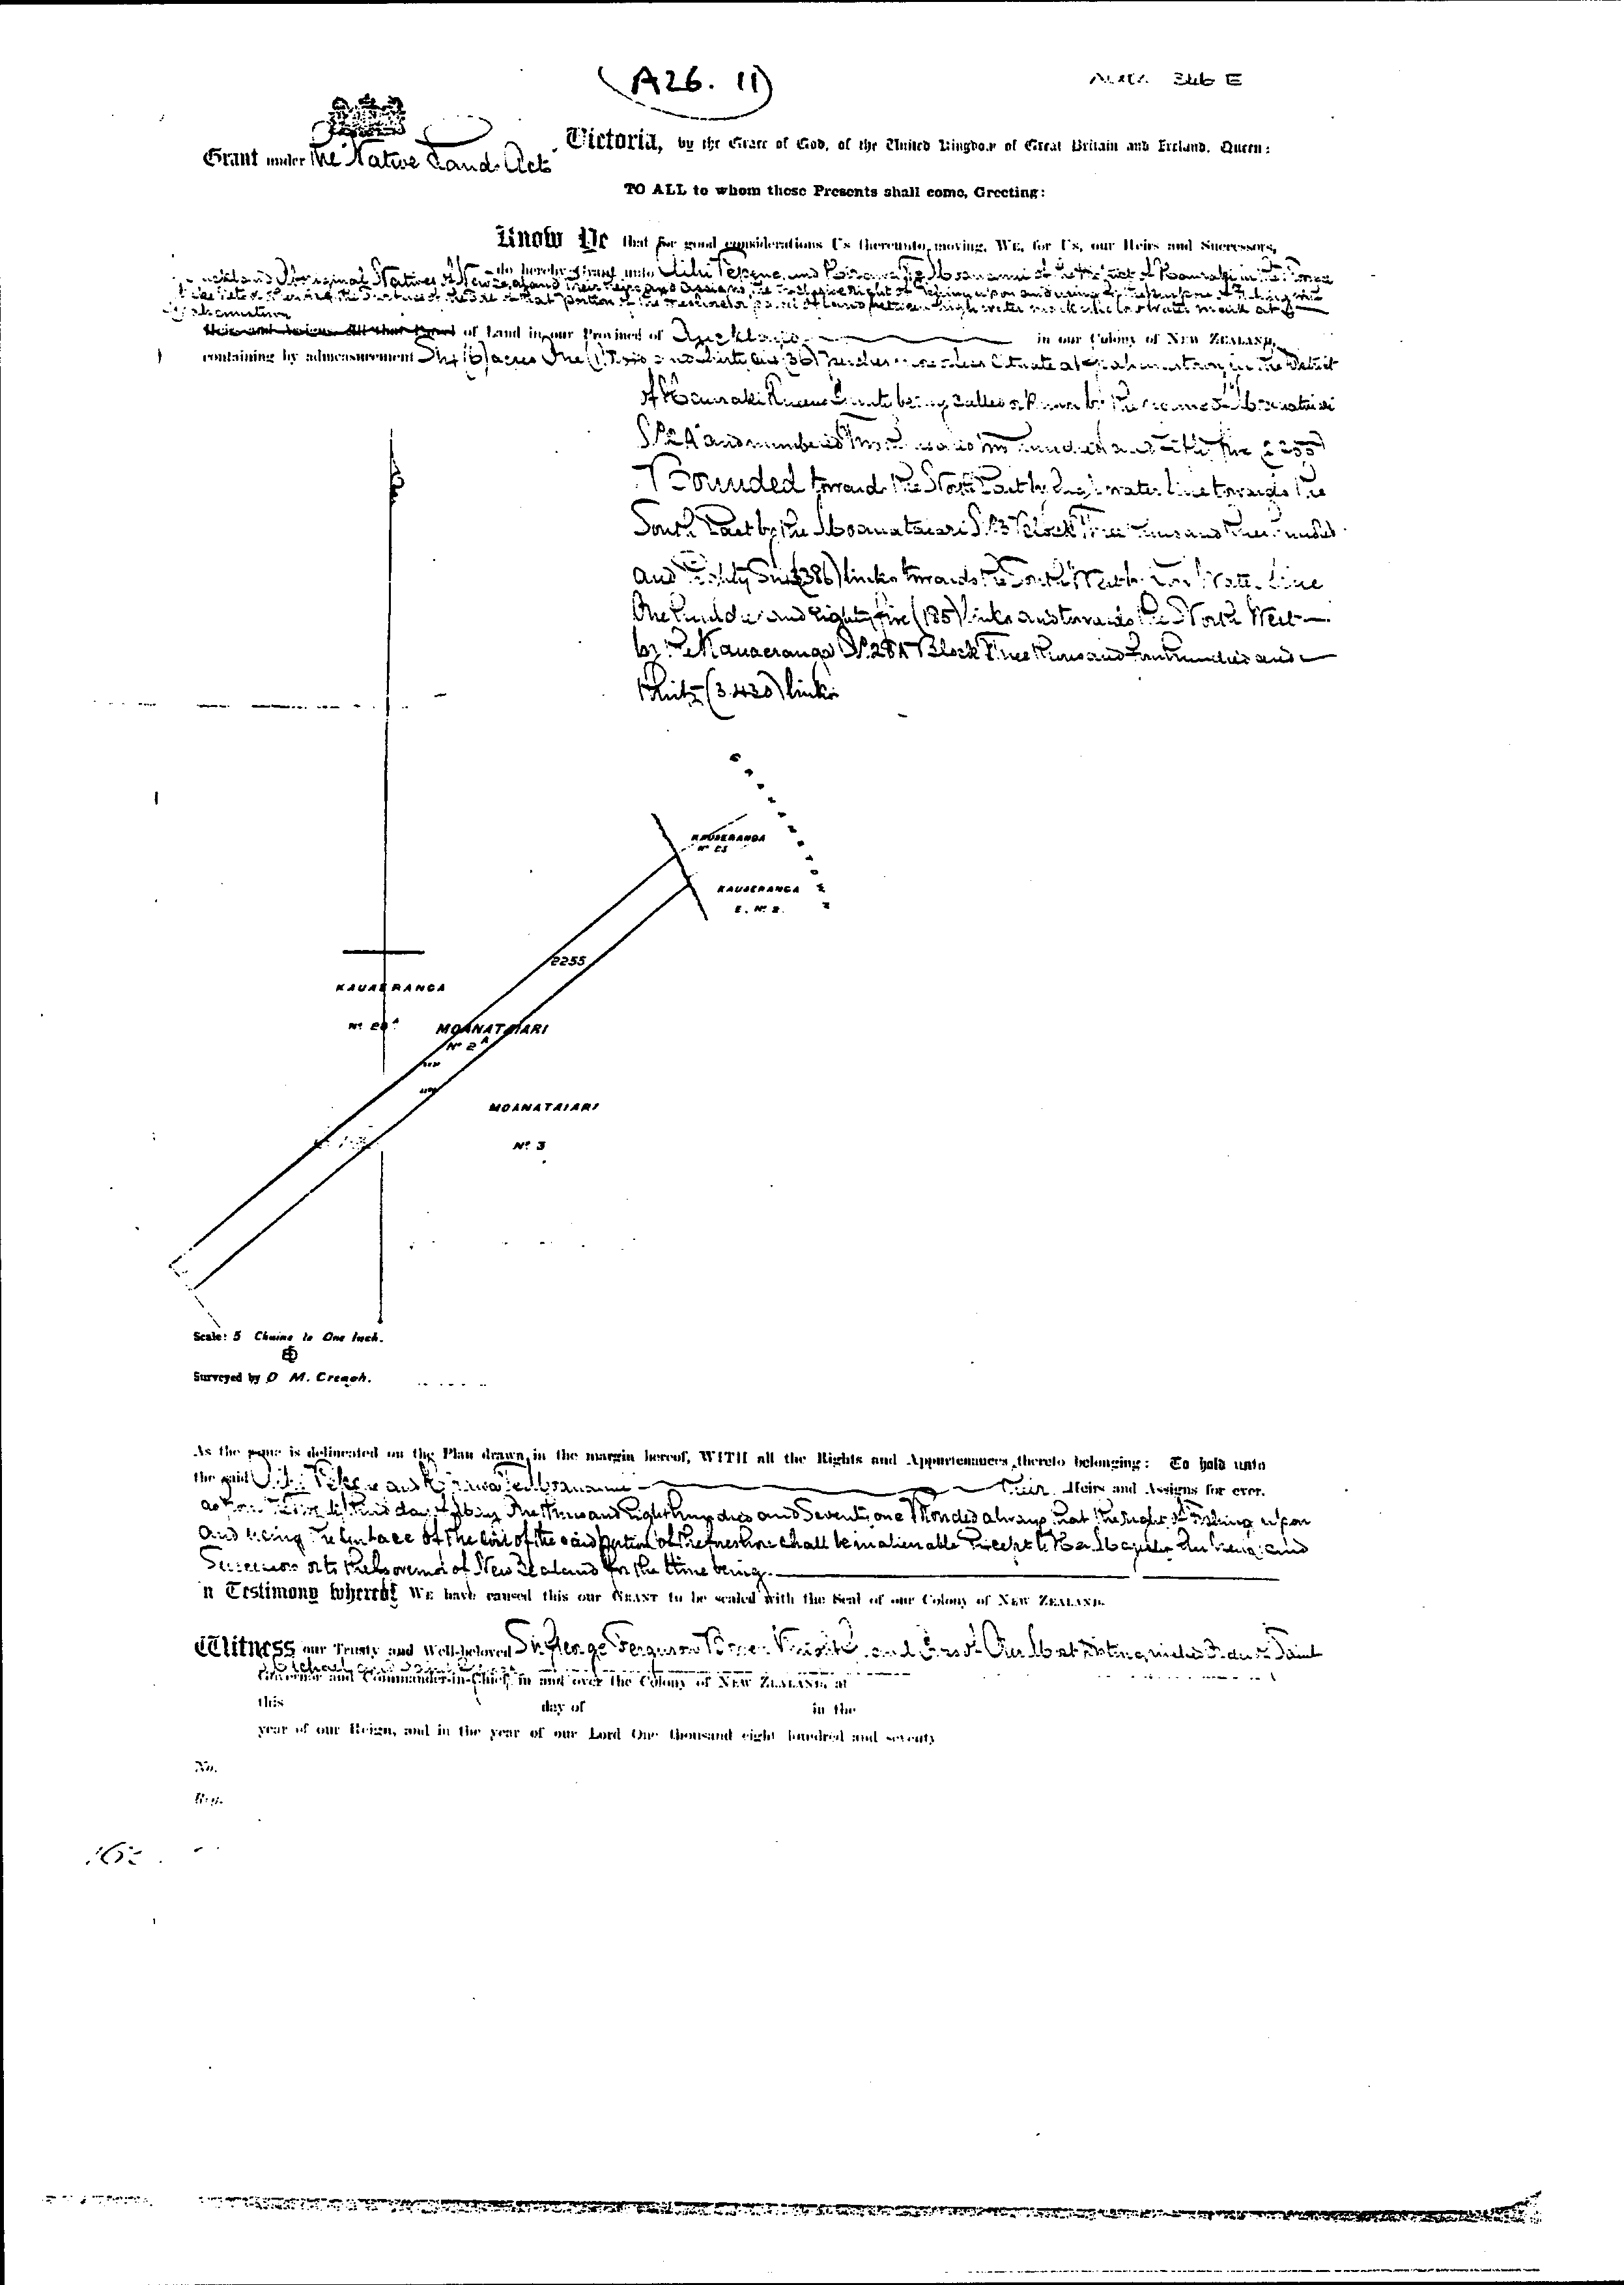 (A26. 11)
346 E
Victoria, by the Grace of God, of the United Kingdom of Great Britain and Ireland, Queen:
Grant under "The Native Lands Acts"
TO ALL to whom these Presents shall come, Greeting:
Know Ye that for good considerations Us thereunto moving, We, for Us, our Heirs and Successors,
do hereby Grant unto and of the District of Hauraki in the
Aboriginal Natives of New Zealand their Heirs and Assigns the Exclusive Right of Fishing upon and using for the purpose of Fishing
the Surface of the Soil of that portion of the foreshore or parcel of Land between high water mark and low water mark at
of Land in our Province of Auckland in our Colony of NEW ZEALAND,
containing by admeasurement Six (6) acres One (1) Rood and thirty six (36) perches more or less Situate at in the District
of Hauraki Queens County being called or known by the name of Moanataiari
No. 2A and numbered Two thousand two hundred and fifty five (2255)
Bounded towards the North East by high water line towards the
South East by the Moanataiari No. 3 Block Three thousand three hundred
and Eighty Six (3386) links towards the South West by Low Water Line
One hundred and eighty five (185) links and towards the North West
by the Kauaeranga No. 28A Block Three thousand four hundred and
thirty (3.430) links
KAUAERANGA
KAUAERANGA
E. No. 2.
2255
KAUAERANGA
No. 28A
MOANATAIARI
No. 2A
MOANATAIARI
No. 3
Scale: 5 Chains to One Inch.
Surveyed by D M. Creagh.
As the same is delineated on the Plan drawn in the margin hereof, WITH all the Rights and Appurtenances thereto belonging: To hold unto
the said and their Heirs and Assigns for ever.
as from the day of One thousand Eight hundred and Seventy one Provided always that the right of Fishing upon
and using the Surface of the Soil of the said portion of the foreshore shall be inalienable Except to Her Majesty Her heirs and
Successors or to the Governor of New Zealand for the time being.
In Testimony whereof WE have caused this our GRANT to be sealed with the Seal of our Colony of NEW ZEALAND.
Witness our Trusty and Well-beloved Sir George Ferguson Bowen Knight Grand Cross of Our Most Distinguished Order of Saint
Michael and Saint George
Governor and Commander-in-Chief, in and over the Colony of NEW ZEALAND, at
this day of in the
year of our Reign, and in the year of our Lord One thousand eight hundred and seventy
No.
Reg.